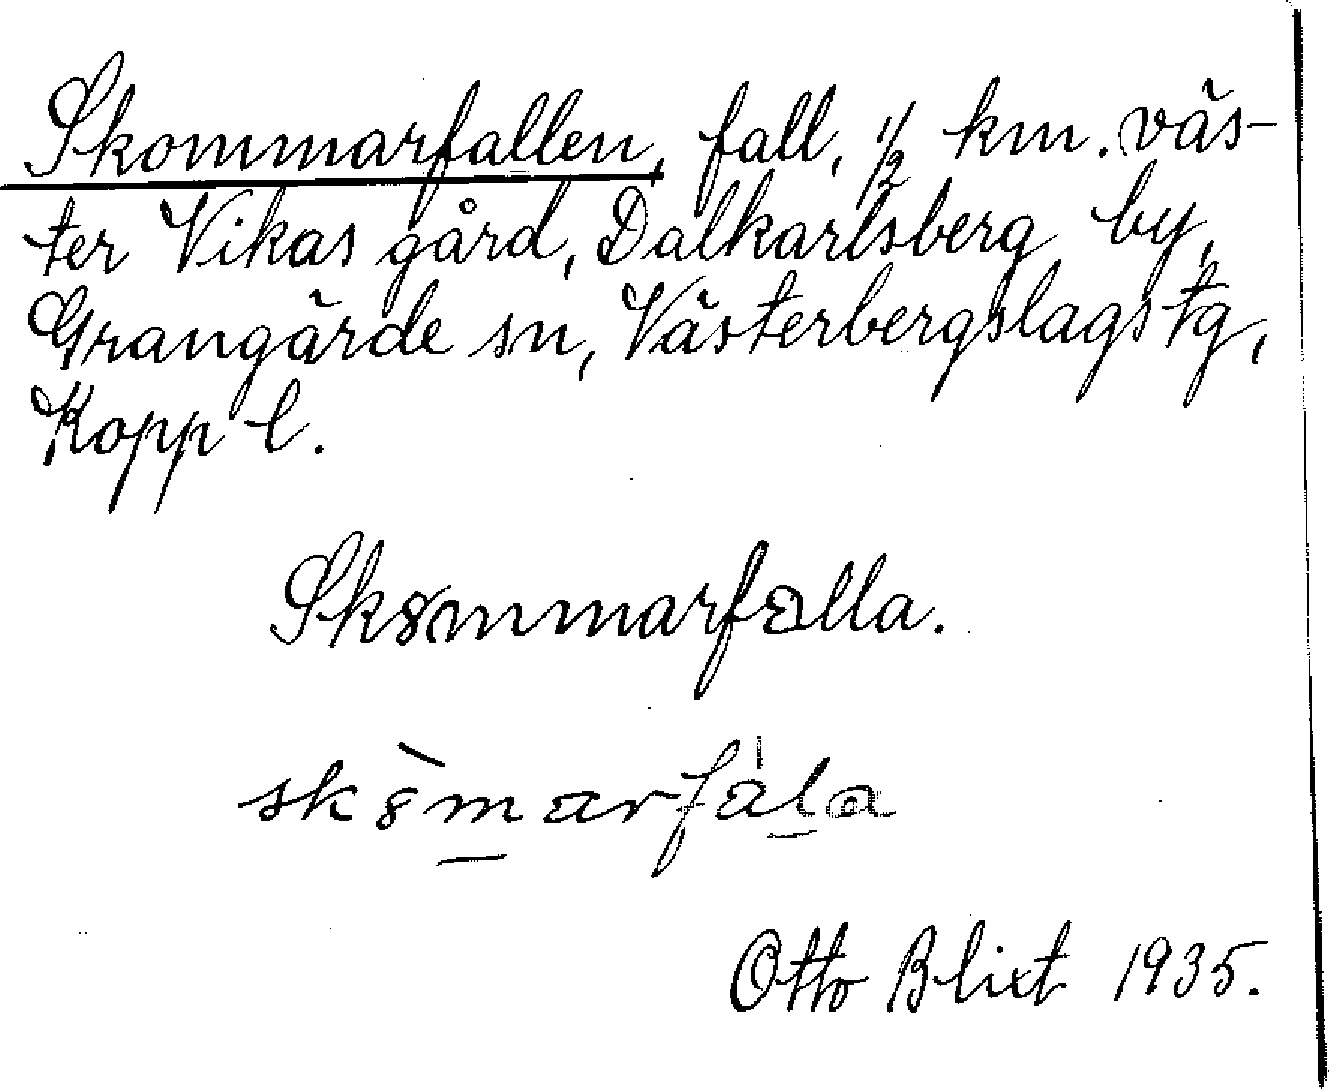 Skommarfallen, fall, 1/2 km. väs-
ter Vikas gård, Dalkarlsberg by,
Grangärde sn, Västerbergslags tg,
Kopp l.
Skȣmmarfalla.
skȣ̀marfàla
Otto Blixt 1935.